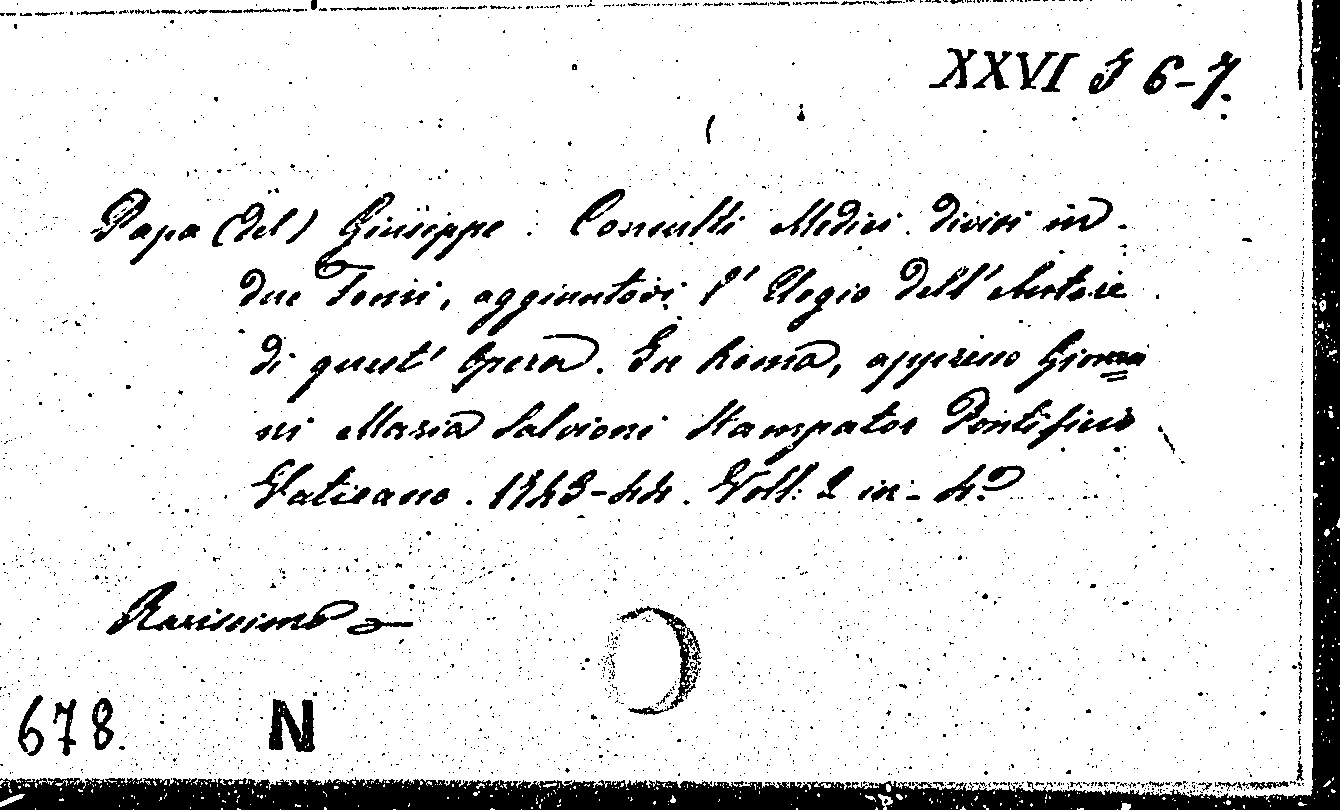 XXVI J 6-7.
Papa (del) Giuseppe. Consulti Medici divisi in
due Tomi, aggiuntovi l' Elogio dell' Autore
di quest' Opera. In Roma, appresso Giovan
ni Maria Salvioni Stampator Pontificio
Vaticano. 1743-44. Voll. 2 in-4º
Rarissimo
678. N